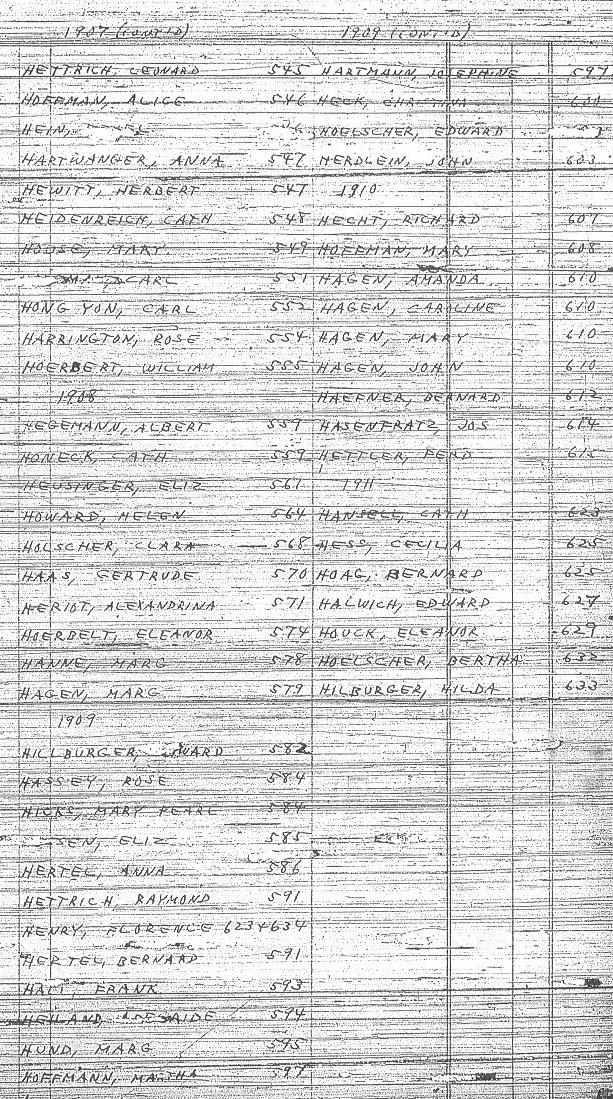 1907 (CONT'D)
HETTRICH, LEONARD 545
HOFFMAN, ALICE 546
HEIN,
HARTWANGER, ANNA 547
HEWITT, HERBERT 547
HEIDENREICH, CATH 548
HOUSE, MARY 549
CARL 551
HONG YON, CARL 552
HARRINGTON, ROSE 554
HOERBERT, WILLIAM 555
1908
HEGEMANN, ALBERT 557
HONECK, CATH 559
HEUSINGER, ELIZ 561
HOWARD, HELEN 564
HOLSCHER, CLARA 568
HAAS, GERTRUDE 570
HERIOT, ALEXANDRINA 571
HOERDELT, ELEANOR 574
HANNE, MARG 578
HAGEN, MARG 579
1909
HILLBURGER, 582
HASSEY, ROSE 584
HICKS, MARY PEARL 584
ELIZ 585
HERTEL, ANNA 586
HETTRICH, RAYMOND 591
HENRY, FLORENCE 623+634
HERTEL, BERNARD 591
HAIT, FRANK 593
HEILAND, 594
HUND, MARG 595
HOFFMANN, MARTHA 597
1909 (CONT'D)
HARTMANN, JOSEPHINE 597
HECK, CHRISTINA 600
HOELSCHER, EDWARD
HERDLEIN, JOHN 603
1910
HECHT, RICHARD 607
HOFFMAN, MARY 608
HAGEN, AMANDA 610
HAGEN, CAROLINE 610
HAGEN, MARY 610
HAGEN, JOHN 610
HAEFNER, BERNARD 612
HASENFRATZ, JOS 614
HETTLER, FERD 615
1911
HANSELL, CATH 623
HESS, CECILIA 625
HOAG, BERNARD 625
HALWICH, EDWARD 627
HOUCK, ELEANOR 629
HOELSCHER, BERTHA 632
HILBURGER, HILDA 633